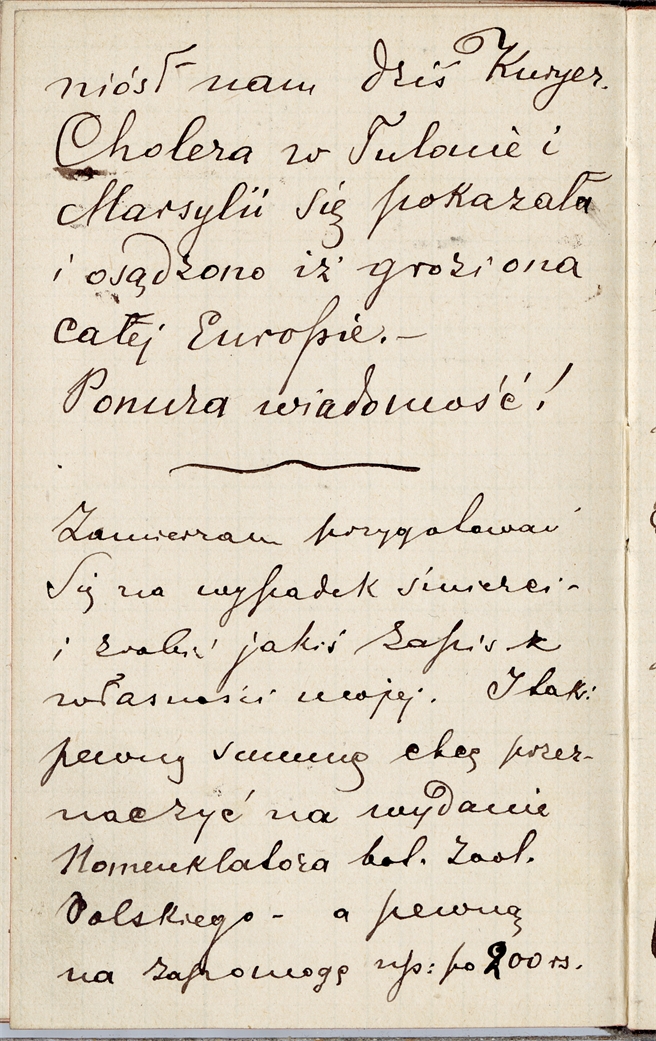 niósł nam dziś Kuryer.
Cholera w Tulonie i
Marsylii się pokazała
i osądzono iż grozi ona
całej Europie.—
Ponura wiadomość!
Zamierzam przygotować
się na wypadek śmierci-
i zrobić jakiś zapis
własności mojej. I tak:
pewną summę chcę przez-
naczyć na wydanie
Nomenklatora bot. zool.
Polskiego - a pewną
na zapomogę np: po 200 rs.